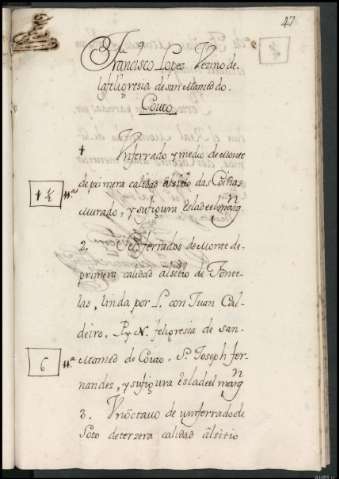 47
Francisco Lopez Vezino de
lafeligresia de san Mamed do
Couto
1 Vnferrado y medio de Monte
de primera calidad alsitio das Cortiñas
Murado, y sufigura esladelmargn
1 ½
2. Seisferrados de Monte de
primera calidad alsitio de Fonte
las, linda por L. con Juan Cal
deiro. P. y N. feligresia de san
Mamed de Couto. S. Joseph fer
nandez, y sufigura esladel margn
6
3. Vnoctavo de vnferradode
Soto detersera calidad alsitio